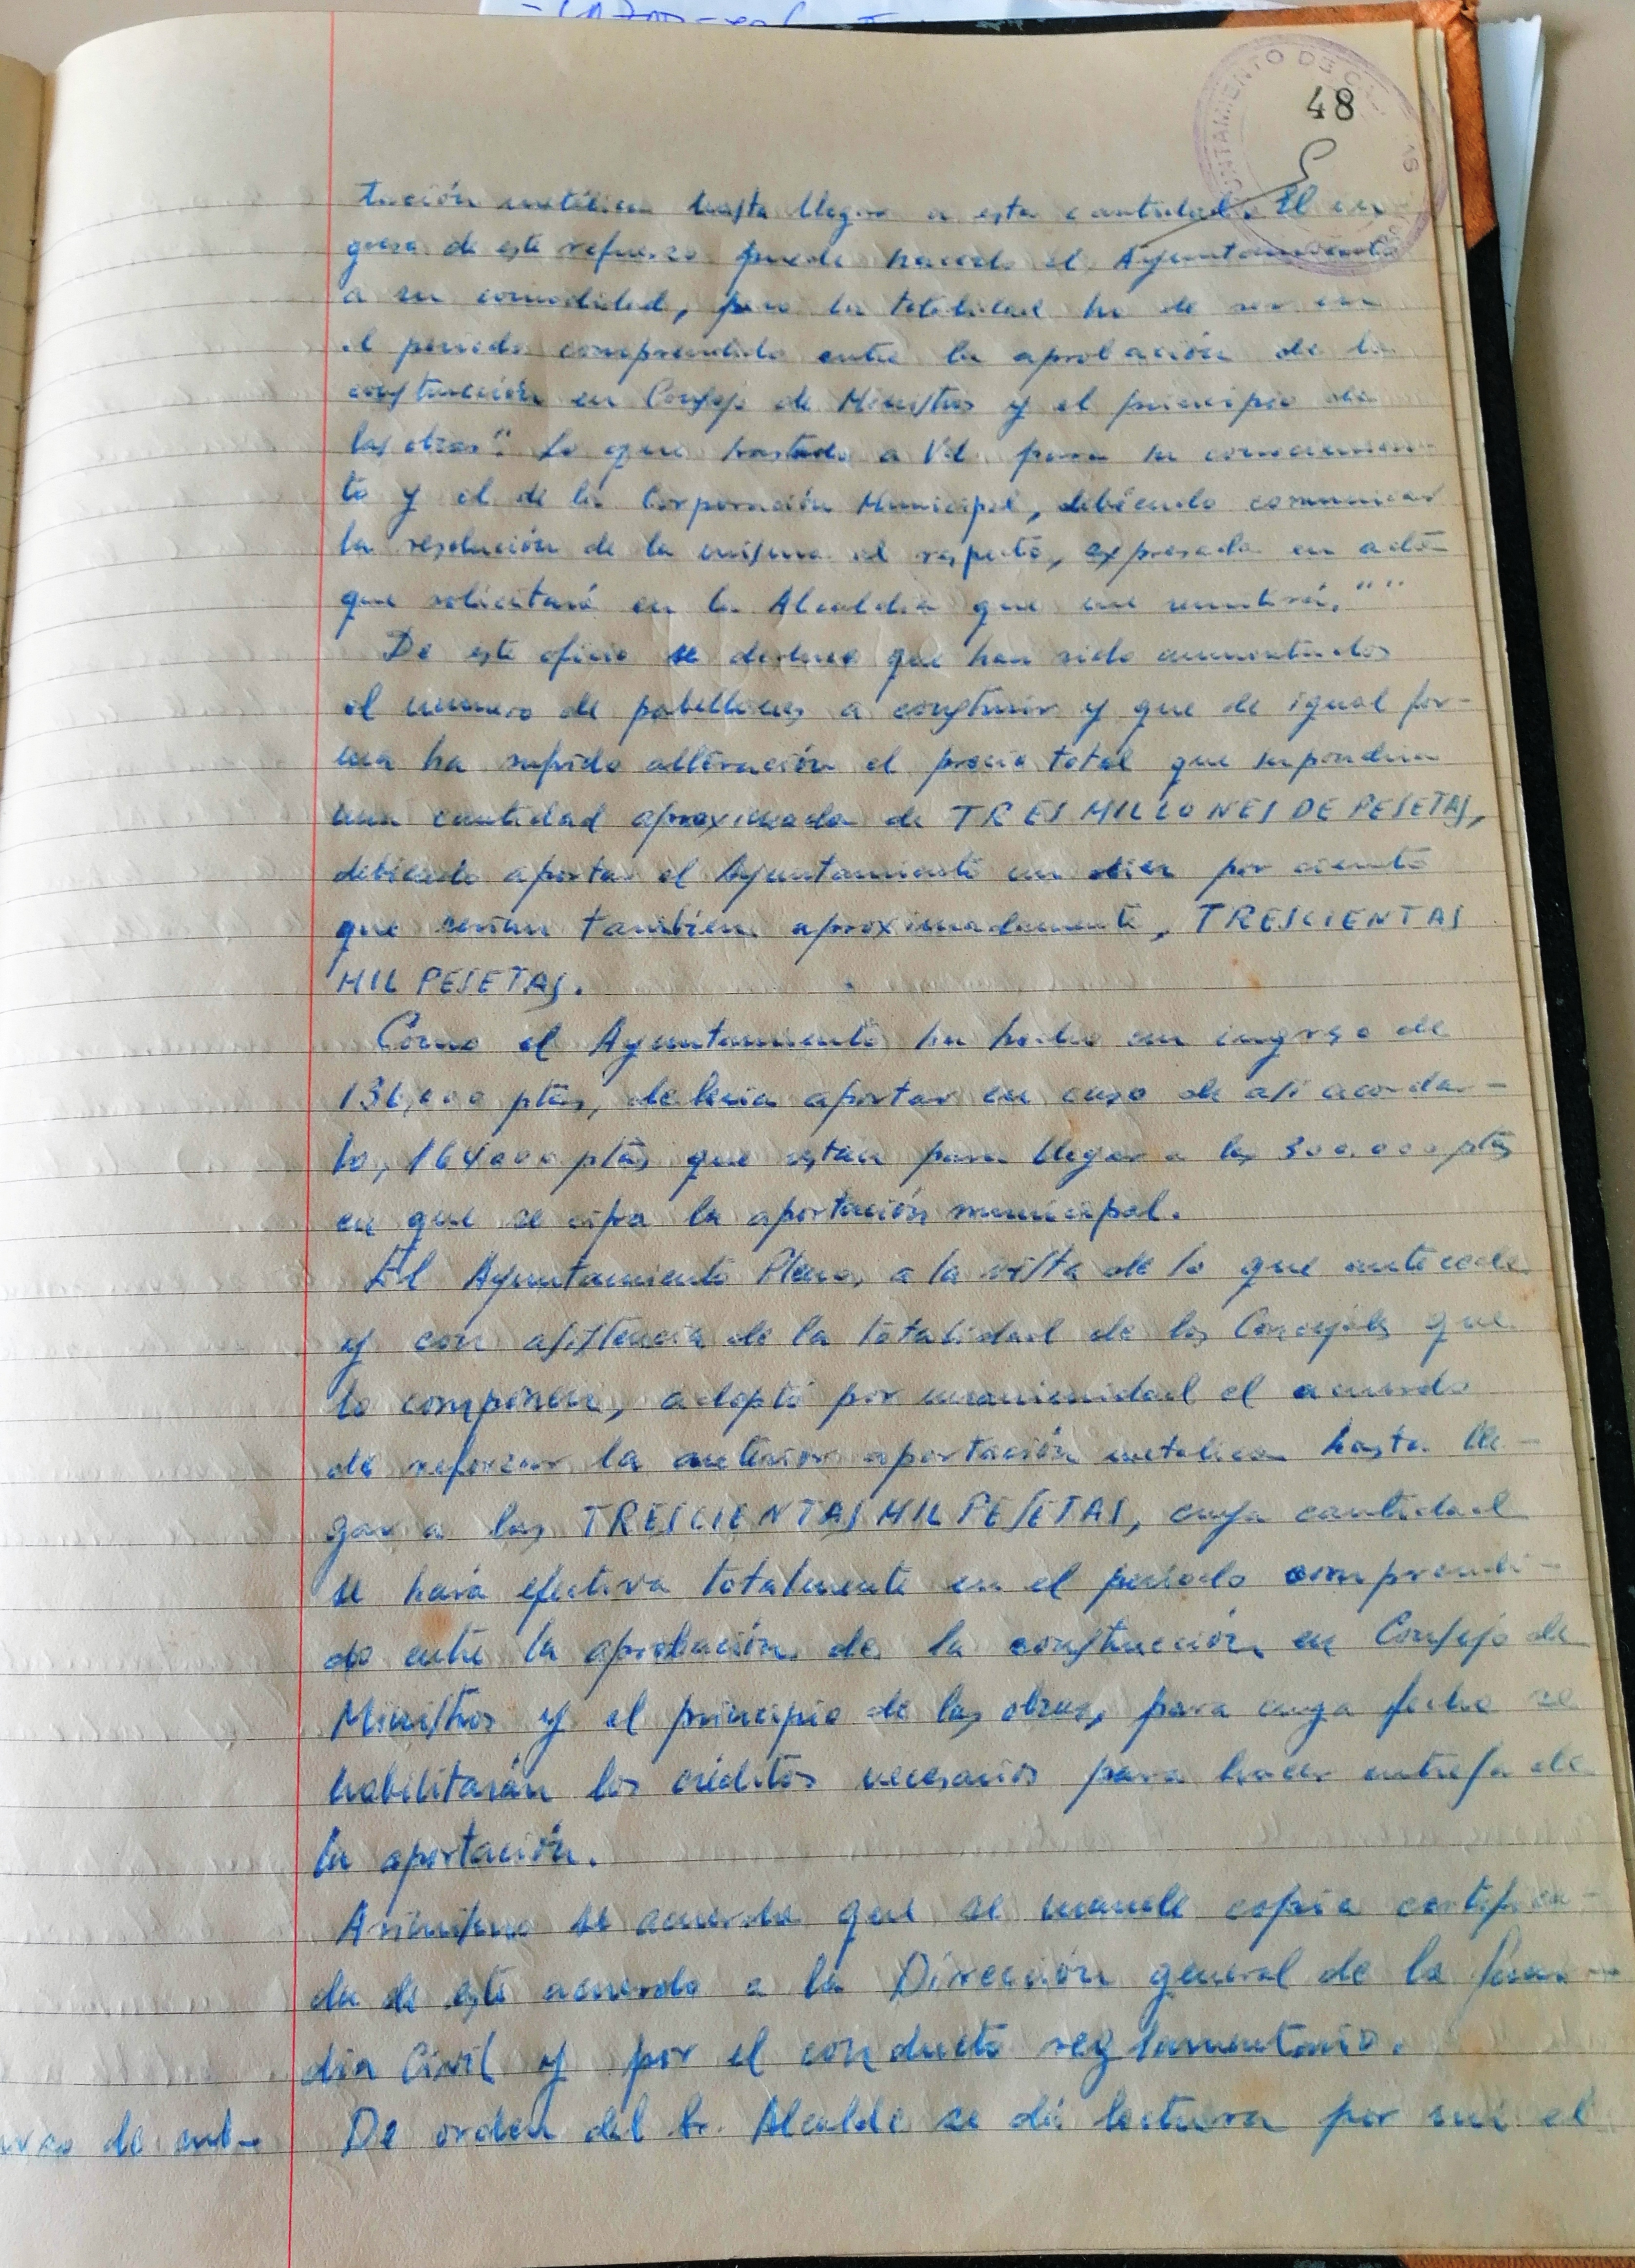 48
tación metálica hasta llegar a esta cantidad. El in-
greso de este refuerzo puede hacerlo el Ayuntamiento
a su comodidad, pero la totalidad ha de ser en
el periodo comprendido entre la aprobación de la
construcción en Consejo de Ministros y el principio de
las obras". Lo que traslado a Vd. para su conocimien-
to y el de la Corporación Municipal, debiendo comunicar
la resolución de la misma al respecto, expresada en acta
que solicitará en la Alcaldia que me remitirá.""
De este oficio se deduce que han sido aumentados
el numero de pabellones a construir y que de igual for-
ma ha sufrido alteración el precio total que supondria
una cantidad aproximada de TRES MILLONES DE PESETAS,
debiendo aportar el Ayuntamiento un diez por ciento
que serian tambien aproximadamente, TRESCIENTAS
MIL PESETAS.
Como el Ayuntamiento ha hecho un ingreso de
136,000 ptas, deberia aportar en caso de asi acordar-
lo, 164000 ptas que restan para llegar a las 300.000 ptas
en que se cifra la aportación municipal.
El Ayuntamiento Pleno, a la vista de lo que antecede
y con asistencia de la totalidad de los Concejales que
lo componen, adoptó por unanimidad el acuerdo
de reforzar la anterior aportación metalica hasta lle-
gar a las TRESCIENTAS MIL PESETAS, cuya cantidad
se hará efectiva totalmente en el periodo comprendi-
do entre la aprobación de la construcción en Consejo de
Ministros y el principio de las obras, para cuya fecha se
habilitarán los créditos necesarios para hacer entrega de
la aportación.
Asimismo se acuerda que se mande copia certifica-
da de este acuerdo a la Dirección general de la Guar-
dia Civil y por el conducto reglamentario.
De orden del Sr. Alcalde se dá lectura por mi el